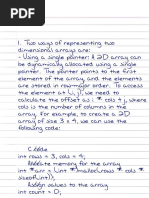 1. Two ways of representing two
dimensional arrays are:
- Using a single pointer: A 2D array can
be dynamically allocated using a single
pointer. The pointer points to the first
element of the array and the elements
are stored in row-major order. To access
the element at (i, j), we need to
calculate the offset as i * cols + j, where
cols is the number of columns in the
array. For example, to create a 2D
array of size 3 x 4, we can use the
following code:
C code
int rows = 3, cols = 4;
// allocate memory for the array
int *arr = (int *)malloc(rows * cols *
sizeof(int));
// assign values to the array
int count = 0;